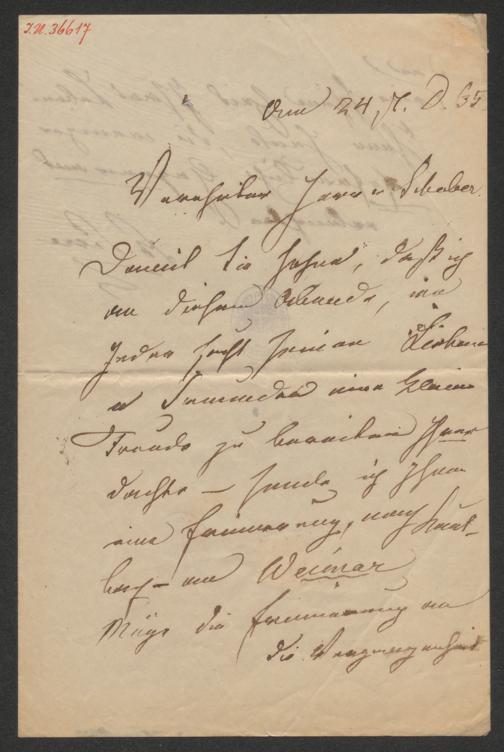 I.N. 36617
den 24, D. 65
Verehrter Herr v Schober
Damit Sie sehen, daß ich
an diesem Abende, wo
Jeder sucht seinen Lieben
u Freunden eine kleine
Freude zu bereiten Ihrer
dachte – sende ich Ihnen
eine Erinnerung, nach
– an Weimar
Möge die Erinnerung an
die Vergangenheit